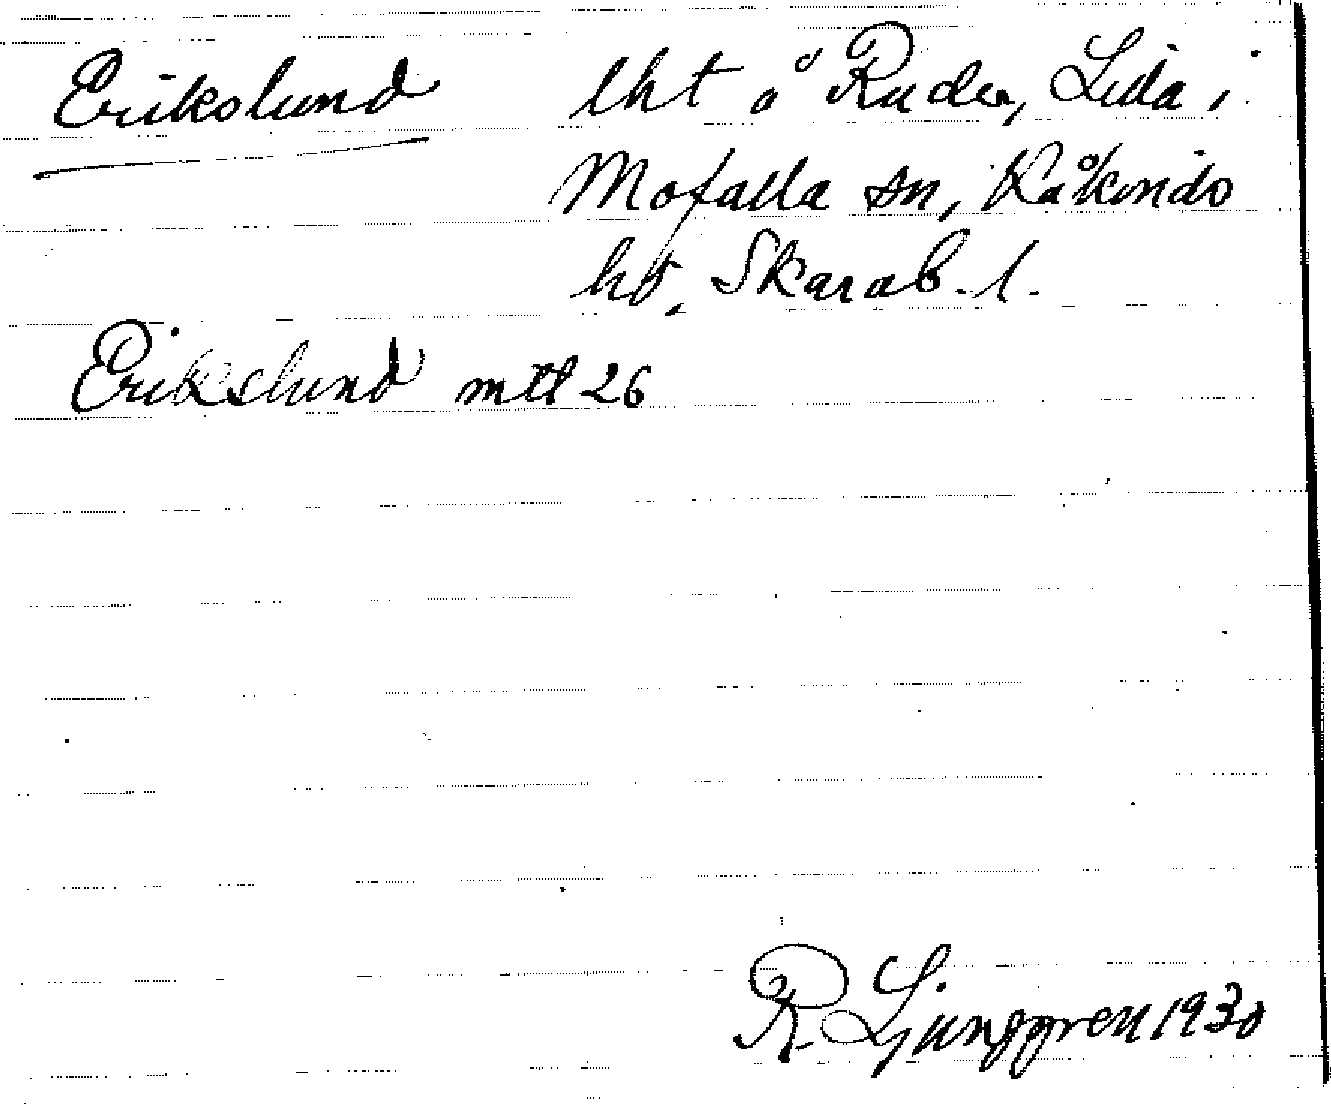 Erikslund lht å Ruder, Lida i
Mofalla sn, Kåkinds
hd, Skarab. l.
Erikslund mtl 26
R. Ljunggren 1930